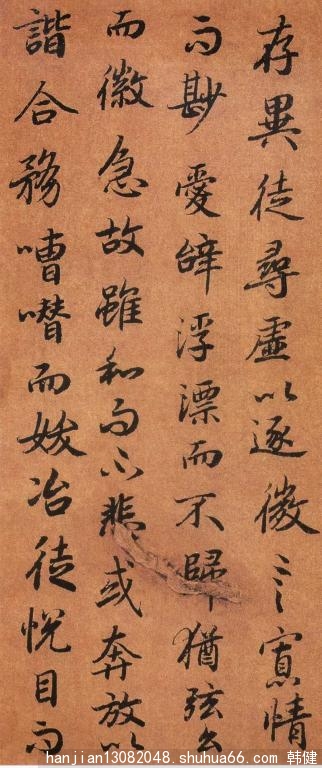 存異徒尋虛以逐微言寡情
而尠愛辭浮漂而不歸猶弦么
而徽急故雖和而不悲或奔放以
諧合務嘈囋而妖冶徒悅目而
hanjian13082048.shuhua66.com 韩健